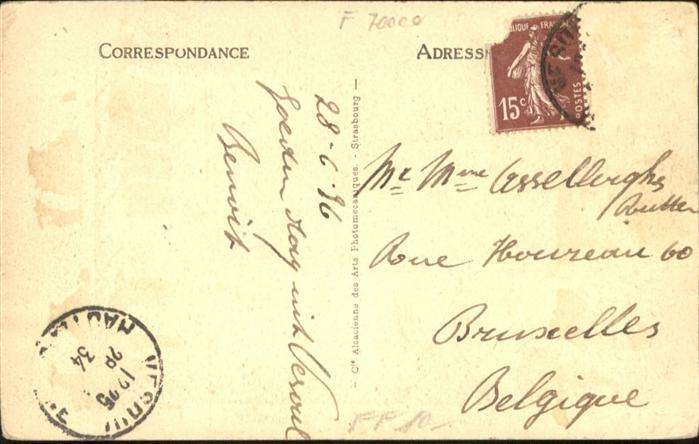 F 70000
CORRESPONDANCE
ADRESSE
FRANÇ
15c
POSTES
28-6-36
Goeden dag uit Vesoul
Benoit
— Cie Alsacienne des Arts Photomécaniques. - Strasbourg —
Mr Mme Asselberghs
Rutten
Rue Houzeau 60
Bruxelles
Belgique
VESOUL
HAUTE
12 25
29
34
FF 10-